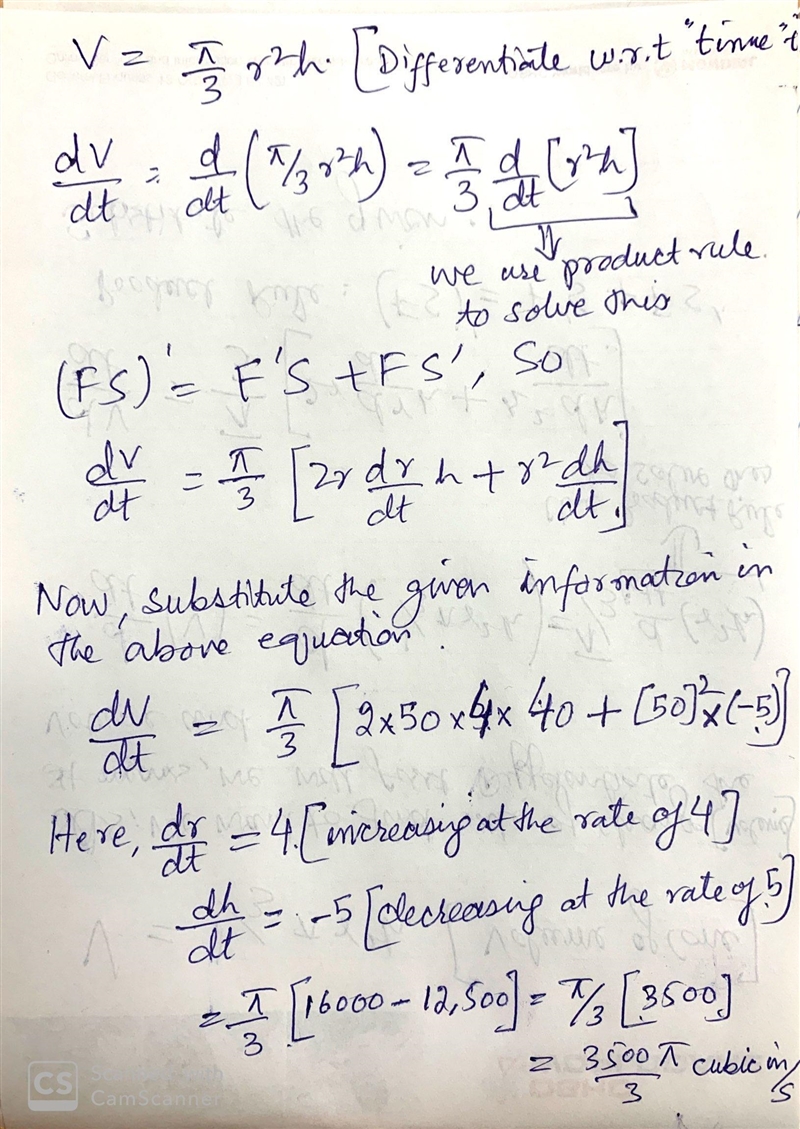 V = π/3 r²h. [Differentiate w.r.t "time" t
dV/dt = d/dt (π/3 r²h) = π/3 d/dt [r²h]
we use product rule.
to solve this
(FS)' = F'S + FS', So
dv/dt = π/3 [2r dr/dt h + r² dh/dt]
Now, substitute the given information in
the above equation.
dV/dt = π/3 [2×50×4×40 + [50]²×(-5)]
Here, dr/dt = 4. [increasing at the rate of 4]
dh/dt = -5 [decreasing at the rate of 5]
= π/3 [16000 - 12,500] = π/3 [3500]
= 3500π/3 cubic in/s
CS
CamScanner